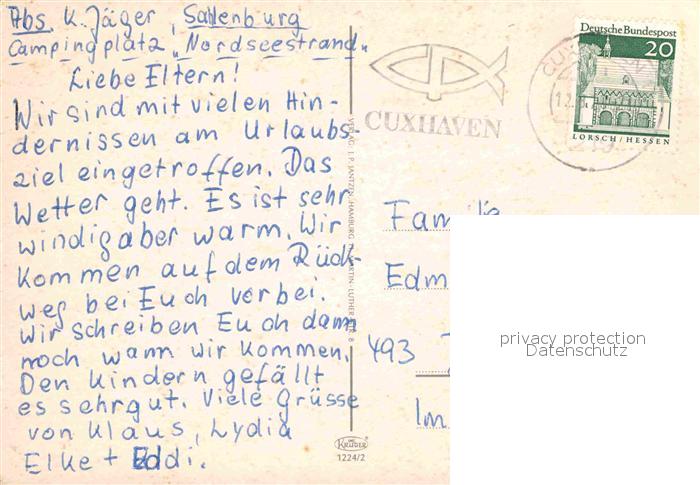 Abs. K. Jäger, Sahlenburg
Campingplatz „Nordseestrand"
Liebe Eltern!
Wir sind mit vielen Hin-
dernissen am Urlaubs-
ziel eingetroffen. Das
Wetter geht. Es ist sehr
windig aber warm. Wir
kommen auf dem Rück-
weg bei Euch vorbei.
Wir schreiben Euch dann
noch wann wir kommen.
Den Kindern gefällt
es sehr gut. Viele Grüsse
von Klaus, Lydia
Elke + Eddi.
VERLAG I. P. JANTZEN, HAMBURG 7, MARTIN-LUTHER-STR. 8
KRÜGER
1224/2
CUXHAVEN
Deutsche Bundespost
20
LORSCH/HESSEN
Familie
Edm
493
Im
privacy protection
Datenschutz